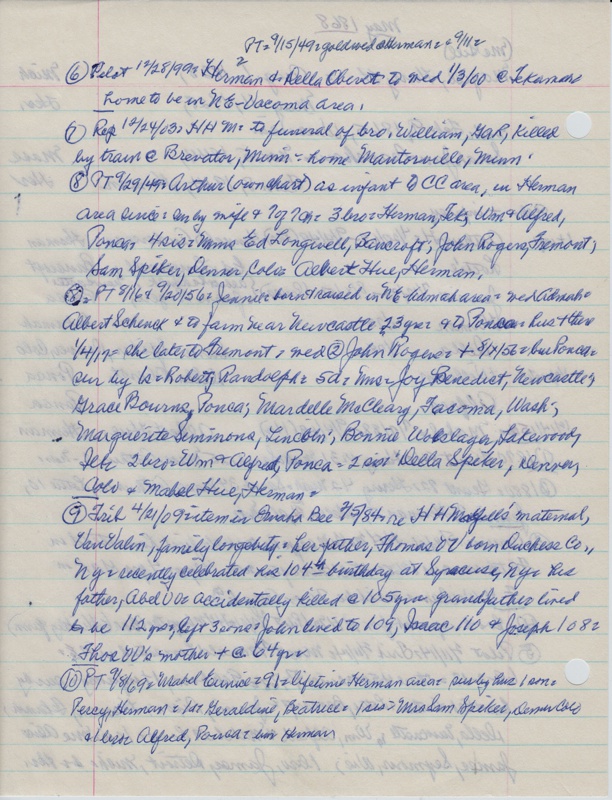 PT = 9/15/49 = gold wed Herman = 9/11 =
⑥ Pilot 12/28/99 = Herman & Della Oberst to wed 1/3/00 @ Tekamah
home to be in NE-Vacoma area.
⑦ Rep 12/24/03 = HH M = to funeral of bro, William, GAR, killed
by train @ Minn = home Mantorville, Minn.
⑧ PT 9/29/49 = Arthur (own chart) as infant to CC area, in Herman
area since = sur by wife & = 3 bro = Herman, Tek, Wm & Alfred,
Ponca = 4 sis = Mmes Ed Longwell, Bancroft; John Rogers, Fremont;
Sam Spiker, Denver, Colo = Albert Hue, Herman.
= PT 8/16 & 9/20/56 = Jennie born & raised in NE-Admah area = wed Admah =
Albert Schenck & to farm near Newcastle 23 yrs & to Ponca = hus + there
= she later to Fremont & wed ② John Rogers = + = bur Ponca =
sur by 1s = Robert, Randolph = 5d = Mms = Joy Benedict, Newcastle;
Grace Bourns, Ponca; Mardelle McCleary, Tacoma, Wash;
Marguerite Simmons, Lincoln; Bonnie Lakewood,
2 bro = Wm & Alfred, Ponca = 2 sis = Della Spiker, Denver,
Colo & Mabel Hue, Herman =
⑨ Trib 4/21/09 = item in Omaha Bee 2/5/84 = re H H maternal,
Van Valin, family longevity = her father, Thomas VV born Duchess Co.,
NY = recently celebrated his 104th birthday at Syracuse, NY = his
father, Abel VV = accidentally killed @ 105 yrs = grandfather lived
to be 112 yrs, left 3 sons = John lived to 109, Isaac 110 & Joseph 108 =
Thos VV's mother + @ 64 yrs
⑩ PT 9/8/69 = Mabel Eunice = 91 = lifetime Herman area = sur by hus 1 son =
Percy, Herman = 1d = Geraldine, Beatrice = 1 sis = Mrs Sam Spiker, Denver Colo
& 1 bro = Alfred, Ponca = bur Herman